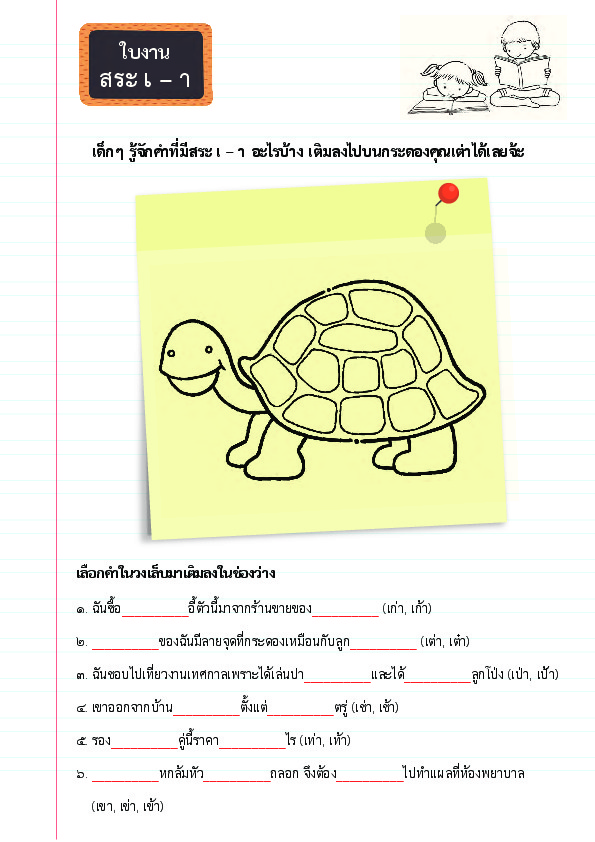 ใบงาน
สระ เ – า
เด็กๆ รู้จักคำที่มีสระ เ – า อะไรบ้าง เติมลงไปบนกระดองคุณเต่าได้เลยจ้ะ
เลือกคำในวงเล็บมาเติมลงในช่องว่าง
๑. ฉันซื้อ__________อี้ตัวนี้มาจากร้านขายของ__________ (เก่า, เก้า)
๒. __________ของฉันมีลายจุดที่กระดองเหมือนกับลูก__________ (เต่า, เต๋า)
๓. ฉันชอบไปเที่ยวงานเทศกาลเพราะได้เล่นปา__________และได้__________ลูกโป่ง (เป่า, เป้า)
๔. เขาออกจากบ้าน__________ตั้งแต่__________ตรู่ (เช่า, เช้า)
๕. รอง__________คู่นี้ราคา__________ไร (เท่า, เท้า)
๖. __________หกล้มหัว__________ถลอก จึงต้อง__________ไปทำแผลที่ห้องพยาบาล
(เขา, เข่า, เข้า)